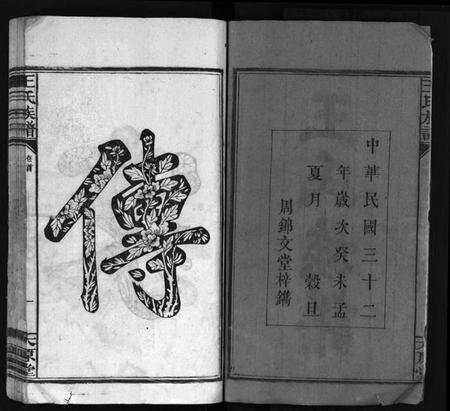 中華民國三十二
年歲次癸未孟
夏月 穀旦
周錦文堂梓鐫
傳
王氏族譜
卷首
一